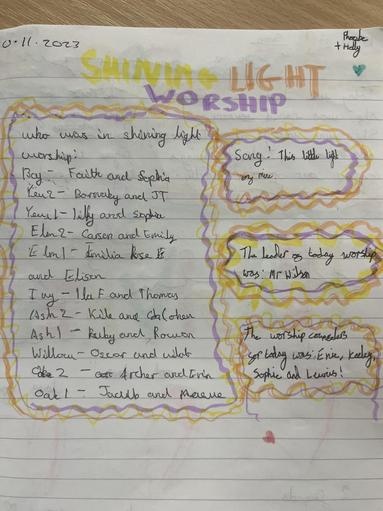 0.11.2023
Phoebe
+ Holly
SHINING LIGHT
WORSHIP
who was in shining light
worship:
Bay - Faith and Sophia
Yew 2 - Barnaby and JT
Yew 1 - Lilly and Sophia
Elm 2 - Carson and Emily
Elm 1 - Emilia Rose
and Elison
Ivy - Ila F and Thomas
Ash 2 - Kile and
Ash 1 - Ruby and Rowan
Willow - Oscar and
Oak 2 - Archer and Erin
Oak 1 - Jacob and
Song: This little light
The leader of today worship
was: Mr Wilson
The worship
for today was: Evie, Keeley,
Sophie and